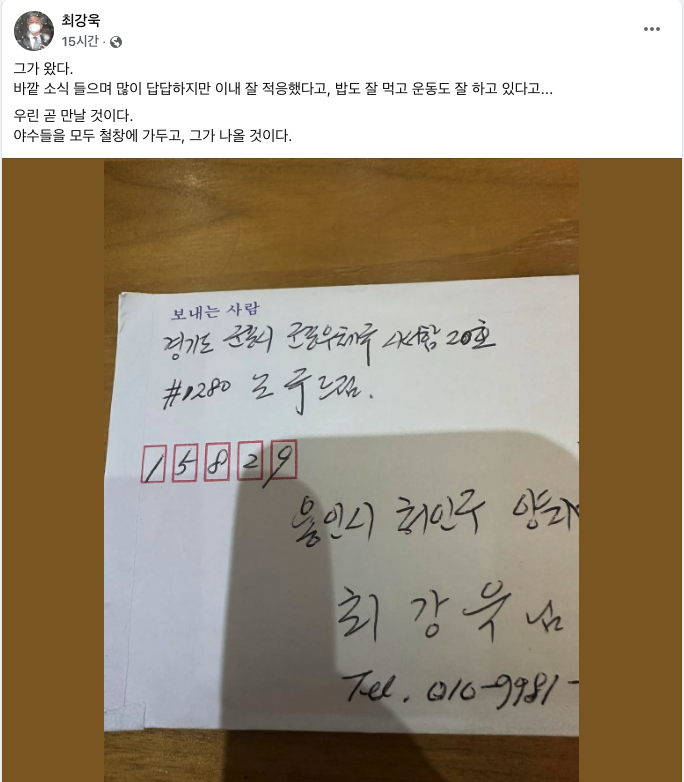 최강욱
15시간 ·
그가 왔다.
바깥 소식 들으며 많이 답답하지만 이내 잘 적응했다고, 밥도 잘 먹고 운동도 잘 하고 있다고...
우린 곧 만날 것이다.
야수들을 모두 철창에 가두고, 그가 나올 것이다.
보내는 사람
경기도 군포시 군포우체국 사서함 20호
#1280 조 국 드림.
15829
용인시 처인구 양지
최강욱님
Tel. 010-9981-